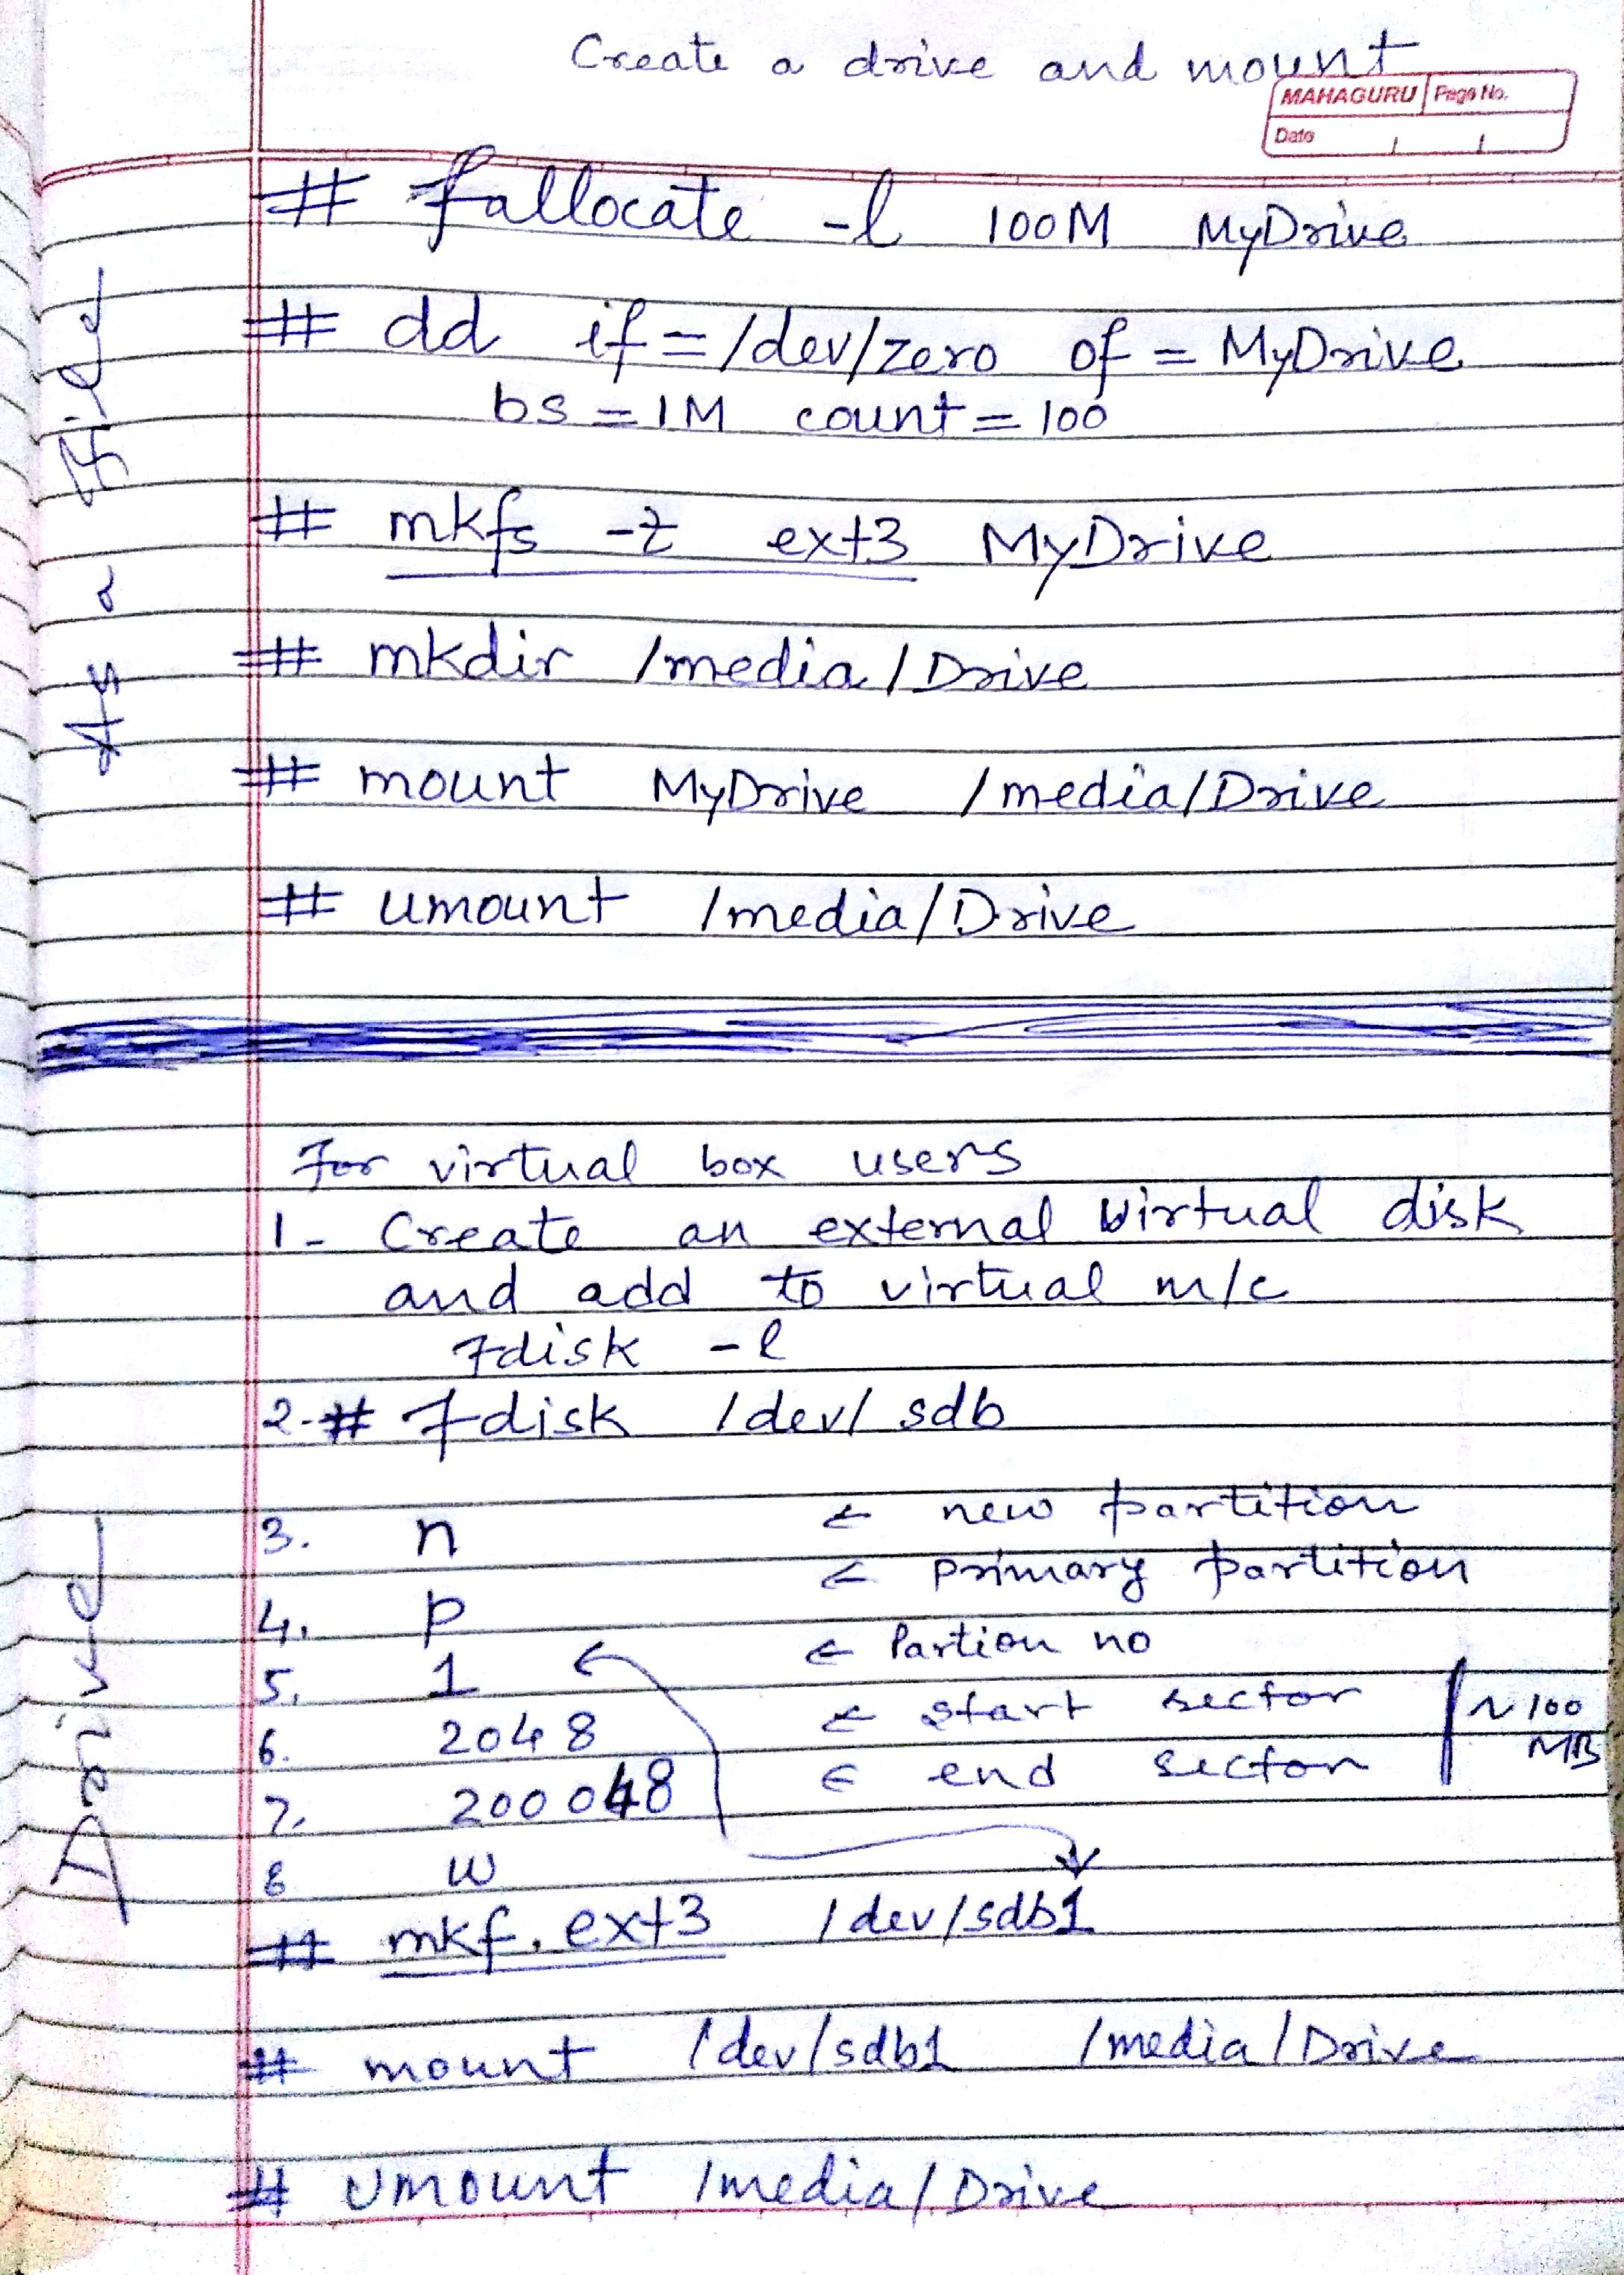 Create a drive and mount
MAHAGURU Page No.
Date
# fallocate -l 100M MyDrive
# dd if=/dev/zero of = MyDrive
bs = 1M count = 100
# mkfs -t ext3 MyDrive
# mkdir /media/Drive
# mount MyDrive /media/Drive
# umount /media/Drive
As a file
For virtual box users
1- Create an external virtual disk
and add to virtual m/c
fdisk -l
2-# fdisk /dev/sdb
3. n ← new partition
4. p ← primary partition
5. 1 ← Partion no
6. 2048 ← start sector
7. 200048 ← end sector
~ 100
MB
8 w
# mkf.ext3 /dev/sdb1
# mount /dev/sdb1 /media/Drive
# umount /media/Drive
Drive